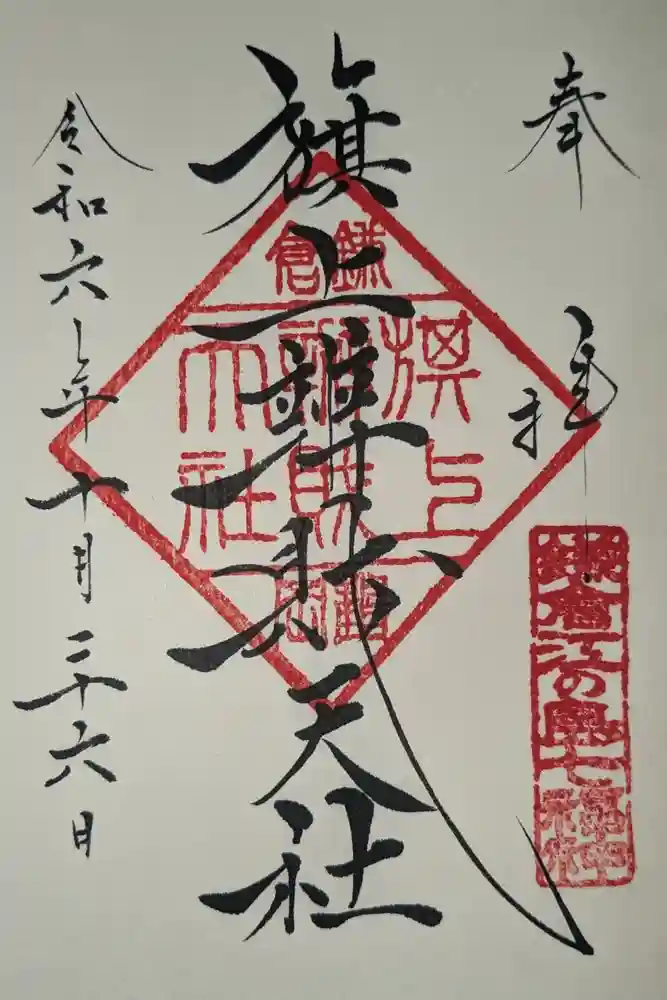 奉拝
鎌倉江の島七福神
旗上辨財天社
鎌倉
旗上
辨財
天社
鶴岡
令和六年十月二十六日